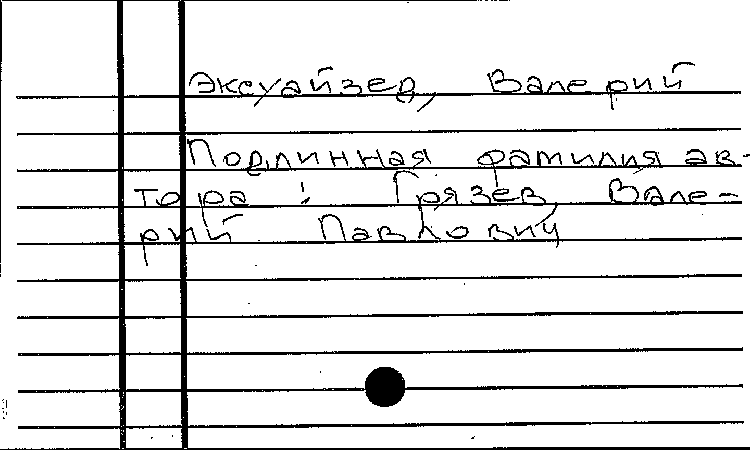 Эксуайзев, Валерий
Подлинная фамилия ав-
тора: Грязев, Вале-
рий Павлович